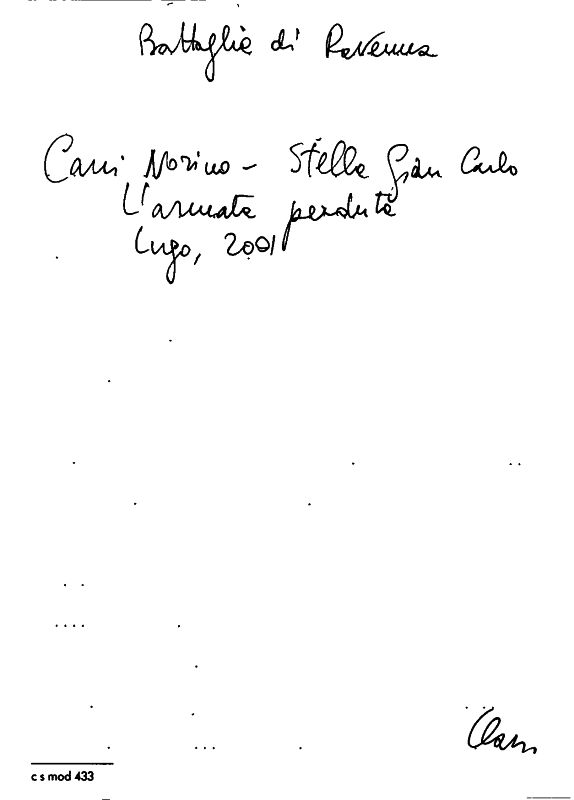 Battaglia di Ravenna
Cani Norino - Stella Gian Carlo
L'armata perduta
Lugo, 2001
Class
c s mod 433